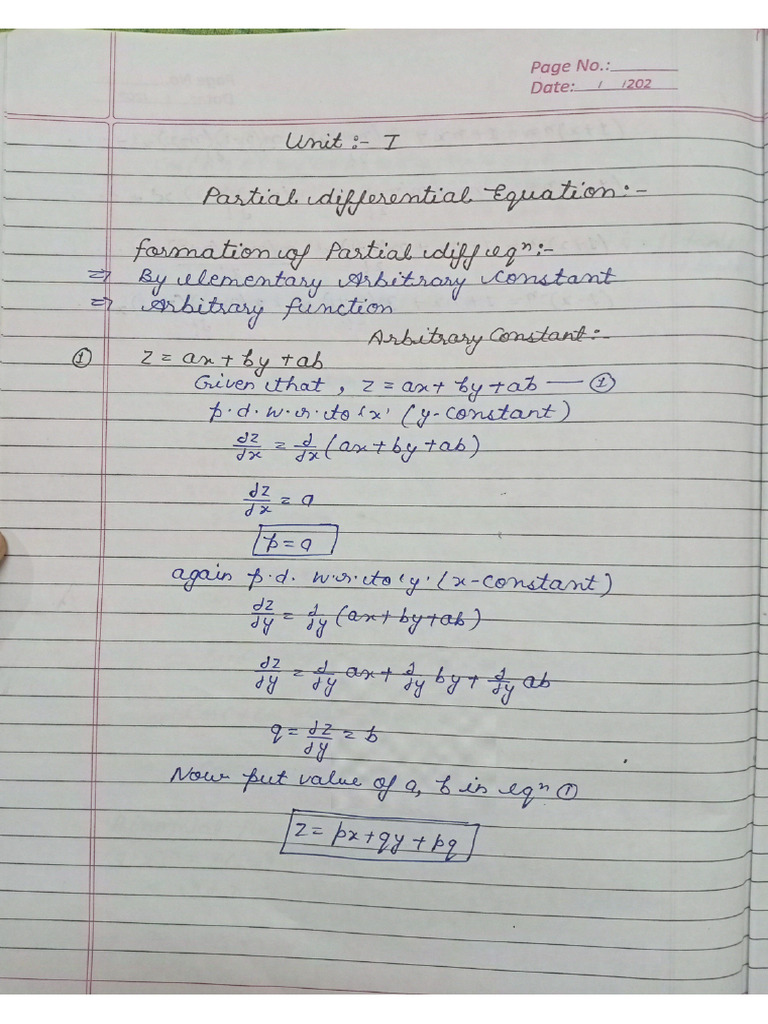 Page No.:
Date: / /202
Unit :- I
Partial differential Equation :-
formation of Partial diff eqⁿ:-
⇒ By elementary Arbitrary constant
⇒ Arbitrary function
Arbitrary Constant:-
① z = ax + by + ab
Given that , z = ax + by + ab — ①
p.d. w.r.to 'x' (y-constant)
∂z/∂x = ∂/∂x (ax + by + ab)
∂z/∂x = a
p = a
again p.d. w.r.to 'y' (x-constant)
∂z/∂y = ∂/∂y (ax + by + ab)
∂z/∂y = ∂/∂y ax + ∂/∂y by + ∂/∂y ab
q = ∂z/∂y = b
Now put value of a, b in eqⁿ ①
z = px + qy + pq